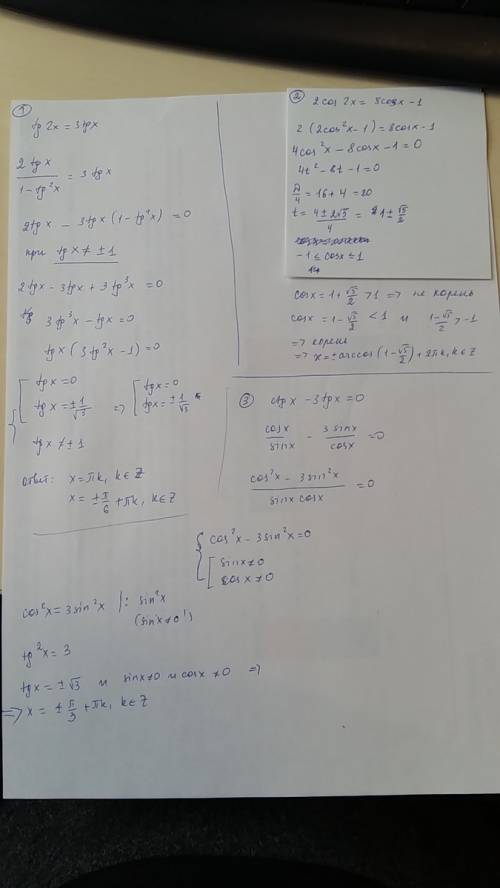 1
tg 2x = 3tgx
2 tgx / (1 - tg²x) = 3 tgx
2tgx - 3tgx (1 - tg²x) = 0
при tgx ≠ ±1
2tgx - 3tgx + 3tg³x = 0
3tg³x - tgx = 0
tgx (3tg²x - 1) = 0
tgx = 0
tgx = ±1/√3 => tgx = 0
tgx = ±1/√3
tgx ≠ ±1
ответ: x = πk, k ∈ Z
x = ±π/6 + πk, k ∈ Z
2
2cos 2x = 8cosx - 1
2 (2cos²x - 1) = 8cosx - 1
4cos²x - 8cosx - 1 = 0
4t² - 8t - 1 = 0
D/4 = 16 + 4 = 20
t = (4 ± 2√5)/4 = 1 ± √5/2
-1 ≤ cosx ≤ 1
cosx = 1 + √5/2 > 1 => не корень
cosx = 1 - √5/2 < 1 и 1 - √5/2 > -1
=> корень
=> x = ±arccos(1 - √5/2) + 2πk, k ∈ Z
3
ctgx - 3tgx = 0
cosx/sinx - 3sinx/cosx = 0
(cos²x - 3sin²x)/(sinx cosx) = 0
cos²x - 3sin²x = 0
sinx ≠ 0
cosx ≠ 0
cos²x = 3sin²x |: sin²x
(sinx ≠ 0!)
tg²x = 3
tgx = ±√3 и sinx ≠ 0 и cosx ≠ 0 =>
=> x = ±π/3 + πk, k ∈ Z